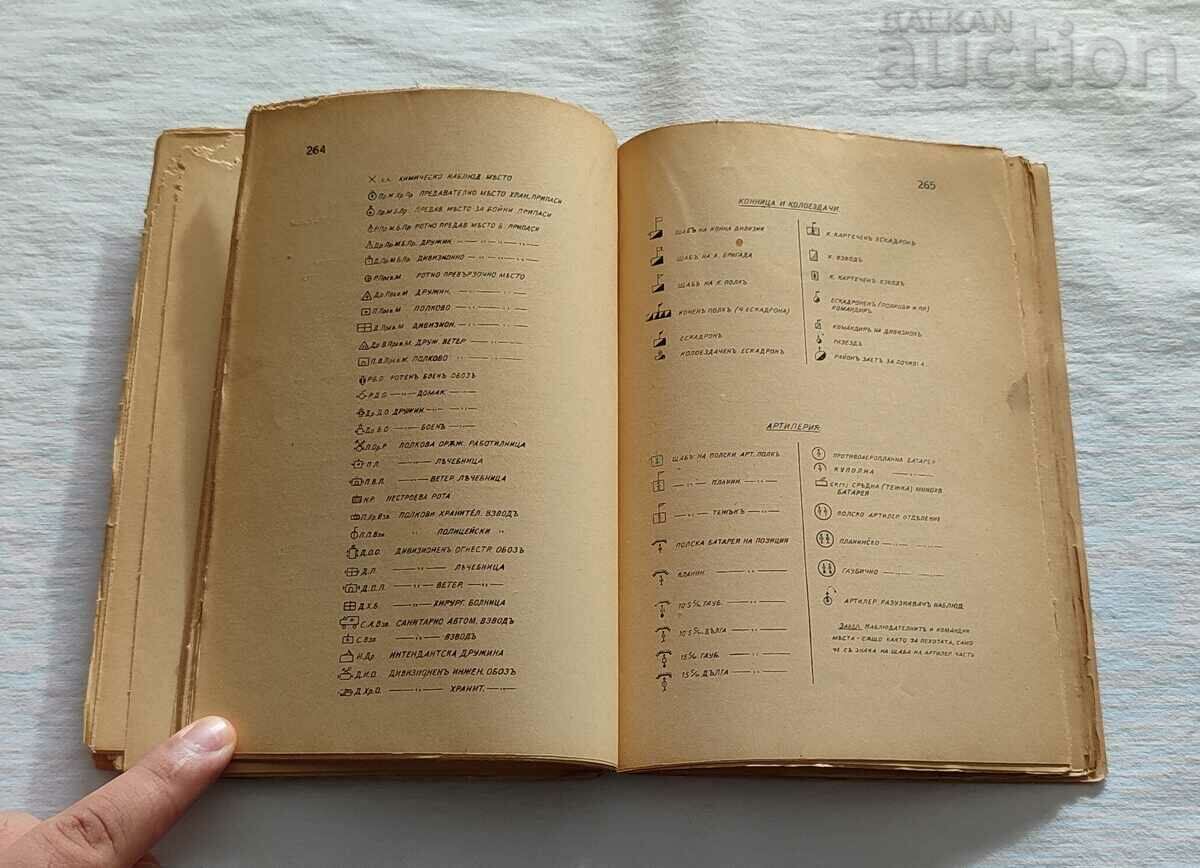 BALKAN
auction
264
Х.Н. ХИМИЧЕСКО НАБЛЮД. МѢСТО
Пр.М.Хр.Пр. ПРЕДАВАТЕЛНО МѢСТО ХРАН. ПРИПАСИ
Пр.М.Б.Пр. ПРЕДАВ. МѢСТО ЗА БОЙНИ ПРИПАСИ
Р.Пр.М.Б.Пр. РОТНО ПРЕДАВ МѢСТО Б. ПРИПАСИ
Др.Пр.М.Б.Пр. ДРУЖИН. —„— —„—
Д.Пр.М.Б.Пр. ДИВИЗИОННО —„— —„—
Р.Прев.М. РОТНО ПРЕВЪРЗОЧНО МѢСТО
Др.Прев.М. ДРУЖИН. —„— —„—
П.Прев.М. ПОЛКОВО —„— —„—
Д.Прев.М. ДИВИЗИОН. —„— —„—
Др.В.Прев.М. ДРУЖ. ВЕТЕР —„— —„—
П.В.Прев.М. ПОЛКОВО „ —„—
Р.Б.О. РОТЕНЪ БОЕНЪ ОБОЗЪ
Р.Д.О. —„— ДОМАК. —„—
Др.Д.О. ДРУЖИН. —„— —„—
Др.Б.О. —„— БОЕНЪ —„—
П.Ор.Р. ПОЛКОВА ОРѪЖ. РАБОТИЛНИЦА
П.Л. —„— ЛѢЧЕБНИЦА
П.В.Л. —„— ВЕТЕР. ЛѢЧЕБНИЦА
Н.Р. НЕСТРОЕВА РОТА
П.Хр.Взв. ПОЛКОВИ ХРАНИТЕЛ. ВЗВОДЪ
П.П.Взв. „ ПОЛИЦЕЙСКИ „
Д.О.О. ДИВИЗИОНЕНЪ ОГНЕСТР. ОБОЗЪ
Д.Л. —„— ЛѢЧЕБНИЦА
Д.О.Л. —„— ВЕТЕР. —„—
Д.Х.Б. —„— ХИРУРГ. БОЛНИЦА
С.А.Взв. САНИТАРНО АВТОМ. ВЗВОДЪ
С.Взв. —„— ВЗВОДЪ
И.Др. ИНТЕНДАНТСКА ДРУЖИНА
Д.И.О. ДИВИЗИОНЕНЪ ИНЖЕН. ОБОЗЪ
Д.Хр.О. —„— ХРАНИТ. —„—
265
КОННИЦА И КОЛОЕЗДАЧИ
ЩАБЪ НА КОННА ДИВИЗИЯ
ЩАБЪ НА К. БРИГАДА
ЩАБЪ НА К. ПОЛК
КОНЕНЪ ПОЛК (4 ЕСКАДРОНА)
ЕСКАДРОНЪ
КОЛОЕЗДАЧЕНЪ ЕСКАДРОНЪ
К. КАРТЕЧЕН ЕСКАДРОНЪ
К. ВЗВОДЪ
К. КАРТЕЧЕНЪ ВЗВОДЪ
ЕСКАДРОНЕНЪ (ПОЛКОВИ И ПР)
КОМАНДИРЪ
КОМАНДИРЪ НА ДИВИЗИОНЪ
РАЗЕЗДЪ
РАЙОНЪ ЗАЕТЪ ЗА ПОЧИВКА
АРТИЛЕРИЯ
ЩАБЪ НА ПОЛСКИ АРТ. ПОЛК
—„— ПЛАНИН. —„—
—„— ТЕЖЪКЪ —„—
ПОЛСКА БАТАРЕЯ НА ПОЗИЦИЯ
ПЛАНИН. —„— —„—
10.5 с/м ГАУБ. —„— —„—
10.5 с/м ДЪЛГА —„— —„—
15 с/м ГАУБ. —„— —„—
15 с/м ДЪЛГА —„— —„—
ПРОТИВОАЕРОПЛАННА БАТАРЕЯ
КУПОЛНА —„—
СР.(Т) СРѢДНА (ТЕЖКА) МИНОХВ
БАТАРЕЯ
ПОЛСКО АРТИЛЕР ОТДѢЛЕНИЕ
ПЛАНИНСКО —„— —„—
ГАУБИЧНО —„— —„—
АРТИЛЕР. РАЗУЗНАВАЧЪ НАБЛЮД.
ЗАБЕЛ. НАБЛЮДАТЕЛНИТѢ И КОМАНДНИ
МѢСТА - СЪЩО КАКТО ЗА ПЕХОТАТА, САМО
ЧЕ СЪ ЗНАКА НА ЩАБА НА АРТИЛЕР ЧАСТЬ